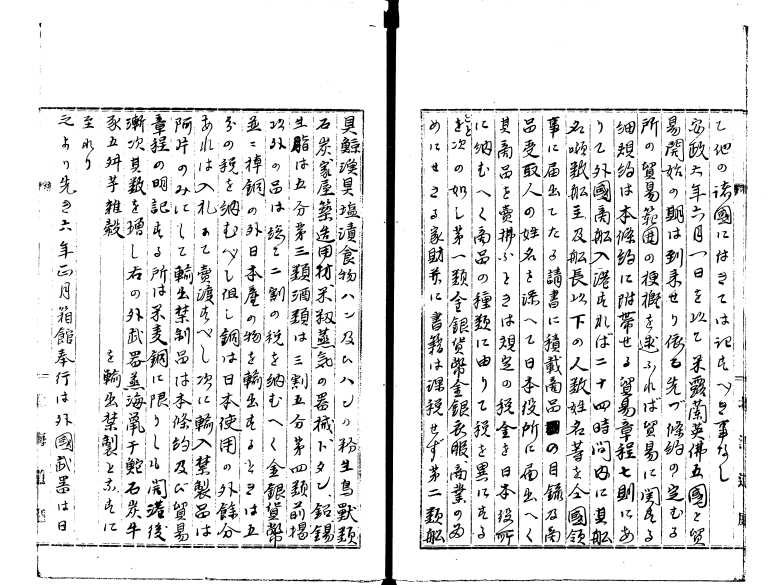 て他の諸國にはきては記すべき事なし
安政六年六月一日を以て米露蘭英佛五國と貿
易開始の期は到来せり依て先づ條約の定むる
所の貿易範囲の梗概を述ふれば貿易に関する
細規約は本條約に附帯せる貿易章程七則にあ
りて外國商船入港すれば二十四時間内に其船
名噸数船主及船長以下の人数姓名等を全國領
事に届出てたる請書に積載商品の目録及商
品受取人の姓名を添へて日本役所に届出へく
其商品を賣拂ふときは規定の税金を日本役所
に納むへく商品の種類に由りて税を異にする
を次の如し第一類金銀貨幣金銀衣服商業の為
めにせざる家財并に書籍は課税せず第二類船
具鯨漁具塩漬食物パン及ひパンの粉生鳥獣類
石炭家屋築造用材米籾蒸気の器械トタン、鉛錫
生脂は五分第三類酒類は三割五分第四類前揭
以外の品は総て二割の税を納むへく金銀貨幣
並に棹銅の外日本産の物を輸出するときは五
分の税を納むべし但し銅は日本使用の外餘分
あれは入札にて賣渡すべし次に輸入禁製品は
阿片のみにして輸出禁制品は本條約及び貿易
章程の明記する所は米麦銅に限りしも開港後
漸次其数を増し右の外武器煎海鼠干鮑石炭牛
豕五升芋雑穀を輸出禁製となすに
至れり
之より先き六年正月箱館奉行は外國武器は日